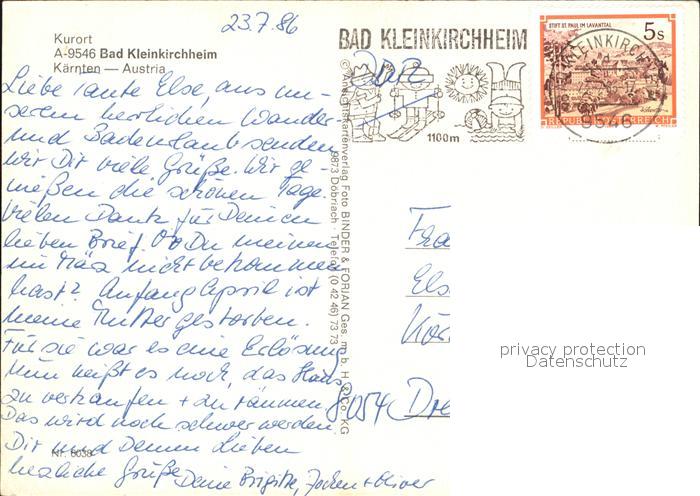 23.7.86
Kurort
A-9546 Bad Kleinkirchheim
Kärnten — Austria
BAD KLEINKIRCHHEIM
1100m
STIFT ST. PAUL IM LAVANTTAL
5s
REPUBLIK ÖSTERREICH
KLEINKIRCH
9546
DDR
Liebe Tante Else, aus un-
serem herrlichen Wander-
und Badeurlaub senden
wir Dir viele Grüße. Wir ge-
nießen die schönen Tage.
Vielen Dank für Deinen
lieben Brief. Ob Du meinen
im März nicht bekommen
hast? Anfang April ist
meine Mutter gestorben.
Für sie war es eine Erlösung
Nun heißt es noch, das Haus
zu verkaufen + zu räumen.
Das wird noch schwer werden.
Dir und Deinen Lieben
herzliche Grüße Deine Brigitte, Jochen + Oliver
Nr. 6038
© Ansichtskartenverlag Foto BINDER & FORIAN Ges. m. b. H. & Co. KG
9873 Döbriach · Telefon (0 42 46) 73 73
Fra
Els
Kör
8054 Dre
privacy protection
Datenschutz